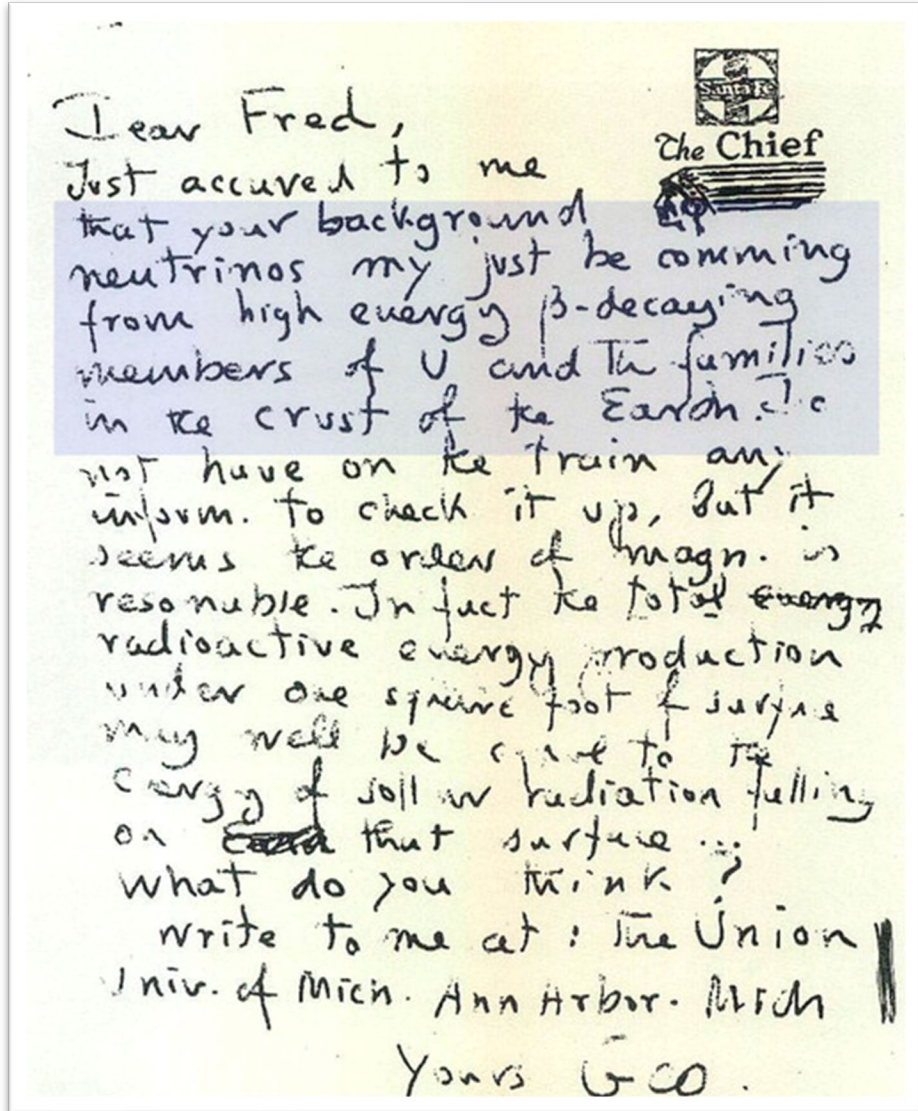 Santa Fe
The Chief
Dear Fred,
Just accured to me
that your background
neutrinos my just be comming
from high energy β-decaying
members of U and Th families
in the crust of the Earth. Do
not have on the train any
inform. to check it up, but it
seems the order of magn. is
resonable. In fact the total energy
radioactive energy production
under one square foot of surfase
may well be equal to the
energy of sollar radiation falling
on that surfase ...
What do you think ?
Write to me at : The Union
Univ. of Mich. Ann Arbor. Mich
Yours Geo.